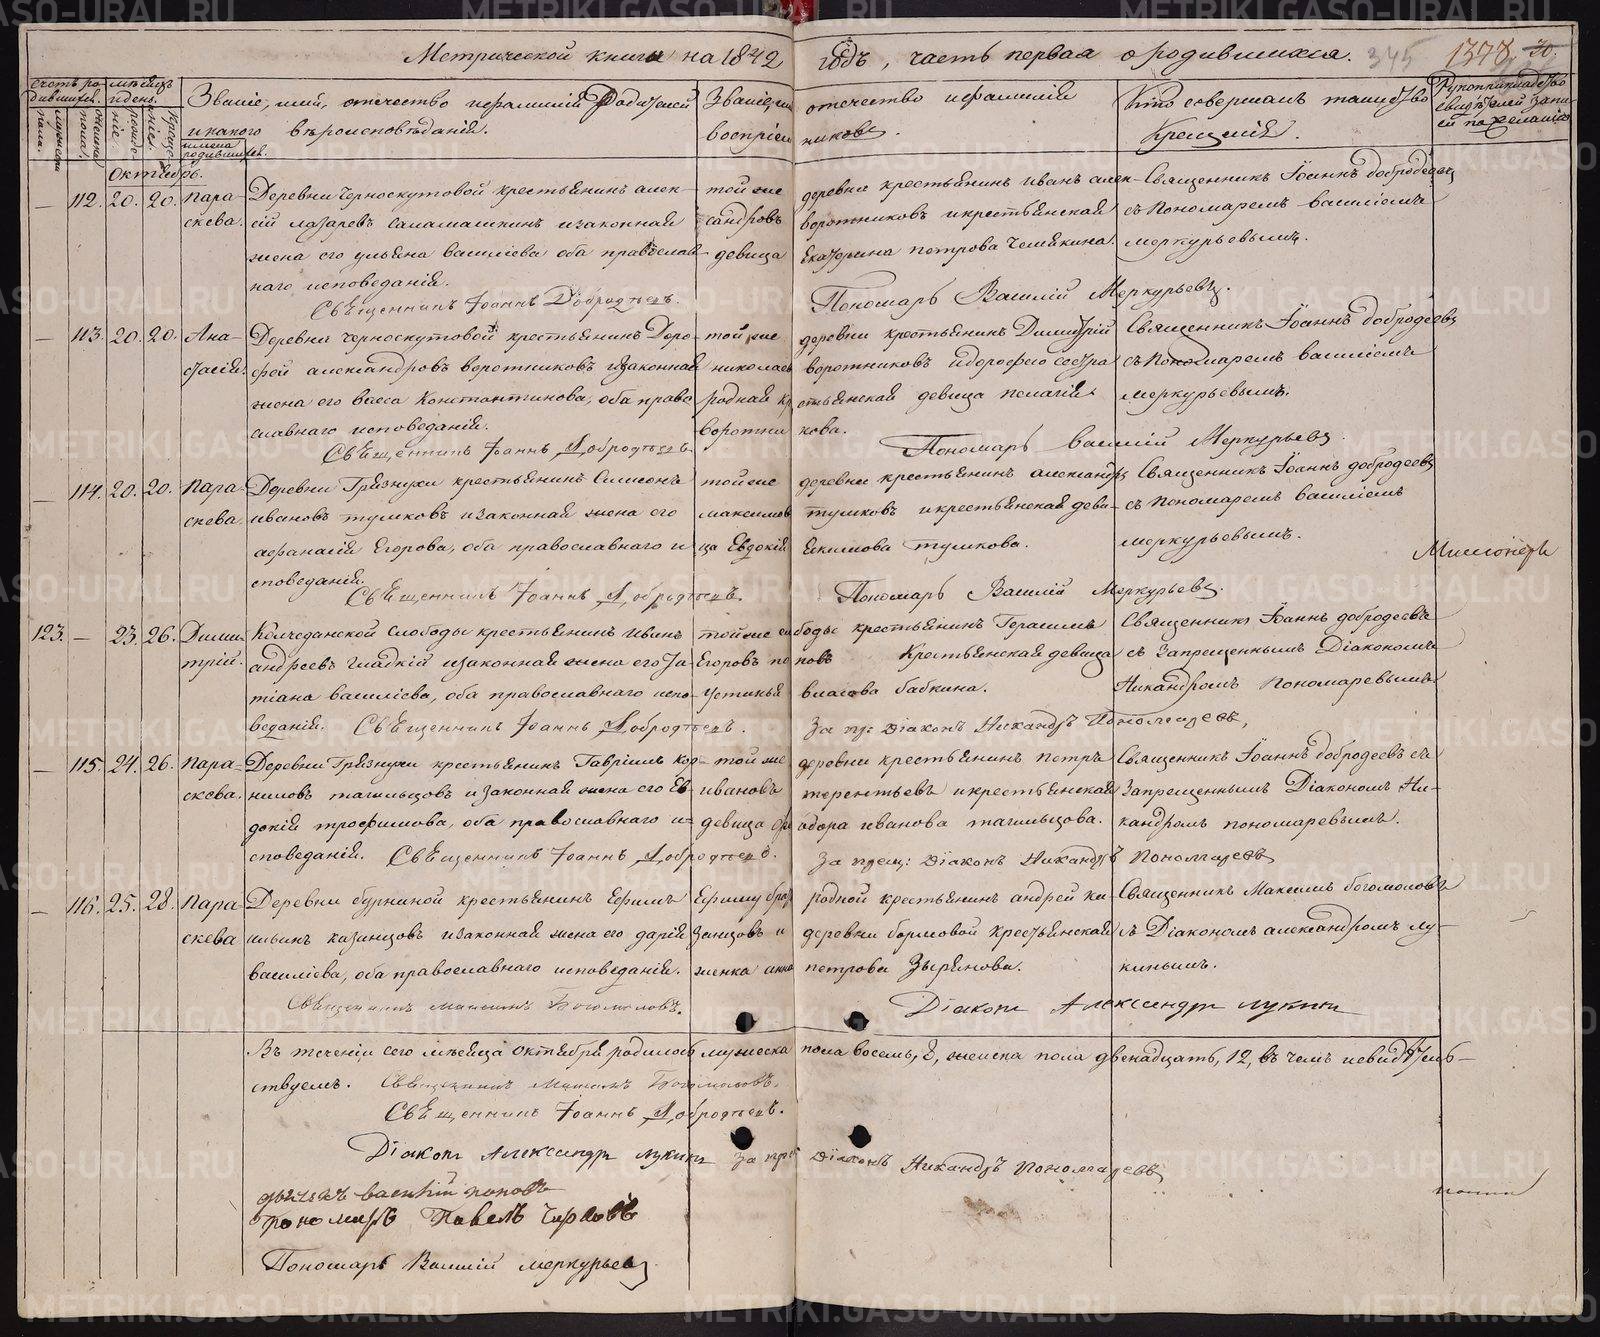 Метрической книги на 1842 годъ, часть первая о родившихся.
345 1378 30.
счетъ родившихся. мѣсяцъ и день. Званіе, имя, отчество и фамилія Родителей и какого вѣроисповѣданія. Званіе, имя отчество и фамилія воспріемниковъ. Кто совершалъ таинство Крещенія. Рукоприкладство свидѣтелей записи по желанію
мужеска пола. женска пола. рожденіе. крещеніе. имена родившихся.
Октябрь.
— 112. 20. 20. Пара- Деревни Черноскутовой крестьянинъ Алек- той же деревни крестьянинъ Иванъ Алек- Священникъ Іоаннъ Добродѣевъ
скева. сій Лазаревъ Саламашкинъ и законная сандровъ Воротниковъ и крестьянская съ Пономаремъ Василіемъ
жена его Ульяна Василіева оба православ- девица Екатерина Петрова Чемякина. Меркурьевымъ.
наго исповеданія.
Священникъ Іоаннъ Добродѣевъ. Пономарь Василій Меркурьевъ.
— 113. 20. 20. Ана- Деревни Черноскутовой крестьянинъ Доро- той же деревни крестьянинъ Димитрій Священникъ Іоаннъ Добродеевъ
стасія. фей Александровъ Воротниковъ и законная Николаевъ Воротниковъ и Дорофею сестра съ Пономаремъ Василіемъ
жена его Васса Константинова, оба право- родная крестьянская девица Пелагія Меркурьевымъ.
славнаго исповеданія. Воротникова.
Священникъ Іоаннъ Добродѣевъ Пономарь Василій Меркурьевъ.
— 114. 20. 20. Пара- Деревни Грязнухи крестьянинъ Симеонъ той же деревни крестьянинъ Александръ Священникъ Іоаннъ Добродеевъ
скева. Ивановъ Тумковъ и законная жена его Максимовъ Тумковъ и крестьянская деви- съ Пономаремъ Василіемъ
Афанасія Егорова, оба православнаго и- ца Евдокія Екимова Тумкова. Меркурьевымъ.
споведанія.
Священникъ Іоаннъ Добродѣевъ. Пономарь Василій Меркурьевъ.
123. — 23. 26. Дими- Колчеданской Слободы крестьянинъ Иванъ той же слободы крестьянинъ Герасимъ Священникъ Іоаннъ Добродеевъ
трій. Андреевъ Гладкій и законная жена его Та- Егоровъ Поповъ Крестьянская девица съ Запрещеннымъ Діакономъ
тіана Василіева, оба православнаго испо- Устинья Власова Бабкина. Никандромъ Пономаревымъ
веданія. Священникъ Іоаннъ Добродѣевъ. За пр: Діаконъ Никандръ Пономаревъ,
— 115. 24. 26. Пара- Деревни Грязнухи крестьянинъ Гавріилъ Кор- той же деревни крестьянинъ Петръ Священникъ Іоаннъ Добродеевъ съ
скева. ниловъ Тагильцовъ и законная жена его Ев- Ивановъ Терентьевъ и крестьянская Запрещеннымъ Діакономъ Ни-
докія Трофимова, оба православнаго и- девица Ѳеодора Иванова Тагильцова. кандромъ Пономаревымъ.
споведанія. Священникъ Іоаннъ Добродѣевъ. За прещ: Діаконъ Никандръ Пономаревъ
— 116. 25. 28. Пара- Деревни Бурниной крестьянинъ Ефимъ Ефиму братъ родной крестьянинъ Андрей Ка- Священникъ Максимъ Богомоловъ
скева Ильинъ Казанцовъ и законная жена его Дарія занцовъ и деревни Бормовой Крестьянская съ Діакономъ Александромъ Лу-
Василіева, оба православнаго исповеданія. женка Анна Петрова Зырянова. кинымъ.
Священникъ Максимъ Богомоловъ. Діаконъ Александръ Лукинъ
Въ теченіи сего мѣсяца Октября родилось мужеска пола восемь, 8, женска пола двенадцать, 12, въ чемъ и свидѣтель-
ствуемъ. Священникъ Максимъ Богомоловъ.
Священникъ Іоаннъ Добродѣевъ.
Діаконъ Александръ Лукинъ За пре Діаконъ Никандръ Пономаревъ
дьячекъ Василій Поповъ
пономарь Павелъ
Пономарь Василій Меркурьевъ
METRIKI.GASO-URAL.RU